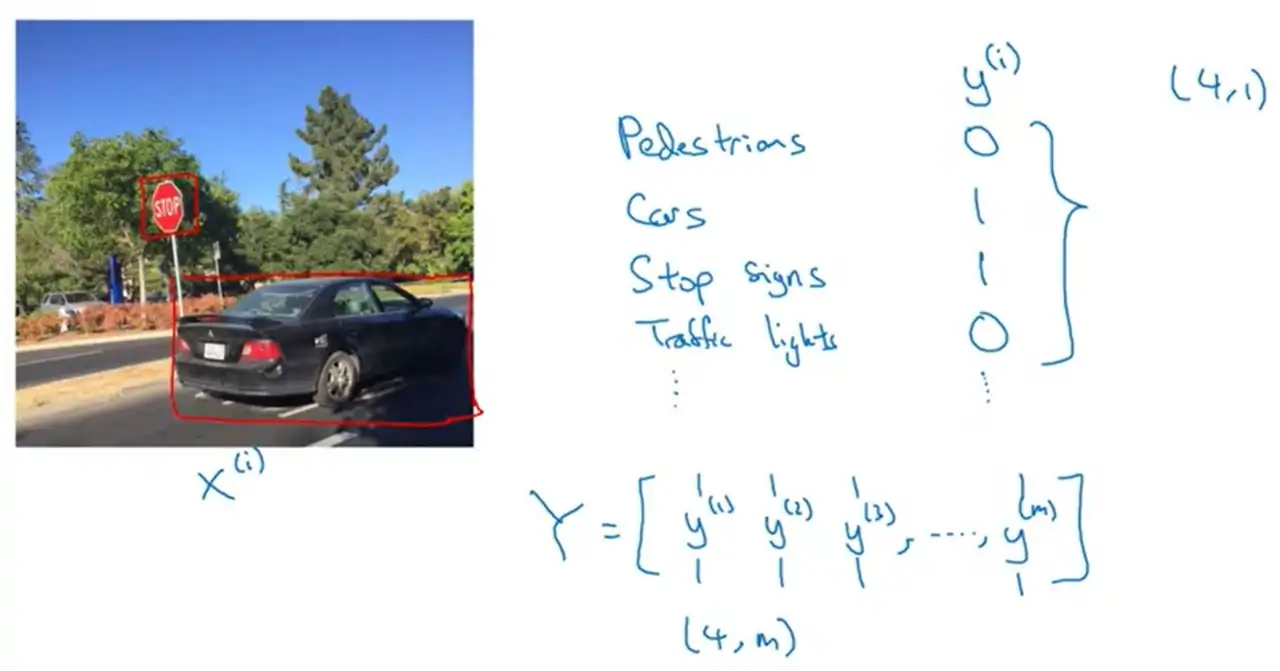 STOP
x^(i)
y^(i) (4,1)
Pedestrians 0
Cars 1
Stop signs 1
Traffic lights 0
⋮ ⋮
Y = [ y^(1) y^(2) y^(3) , ...., y^(m) ]
(4, m)